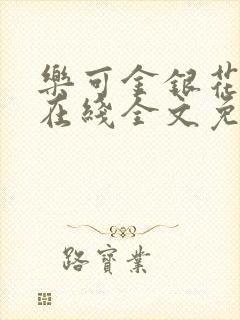 樂可金銀花
在綫全文免
路寶業